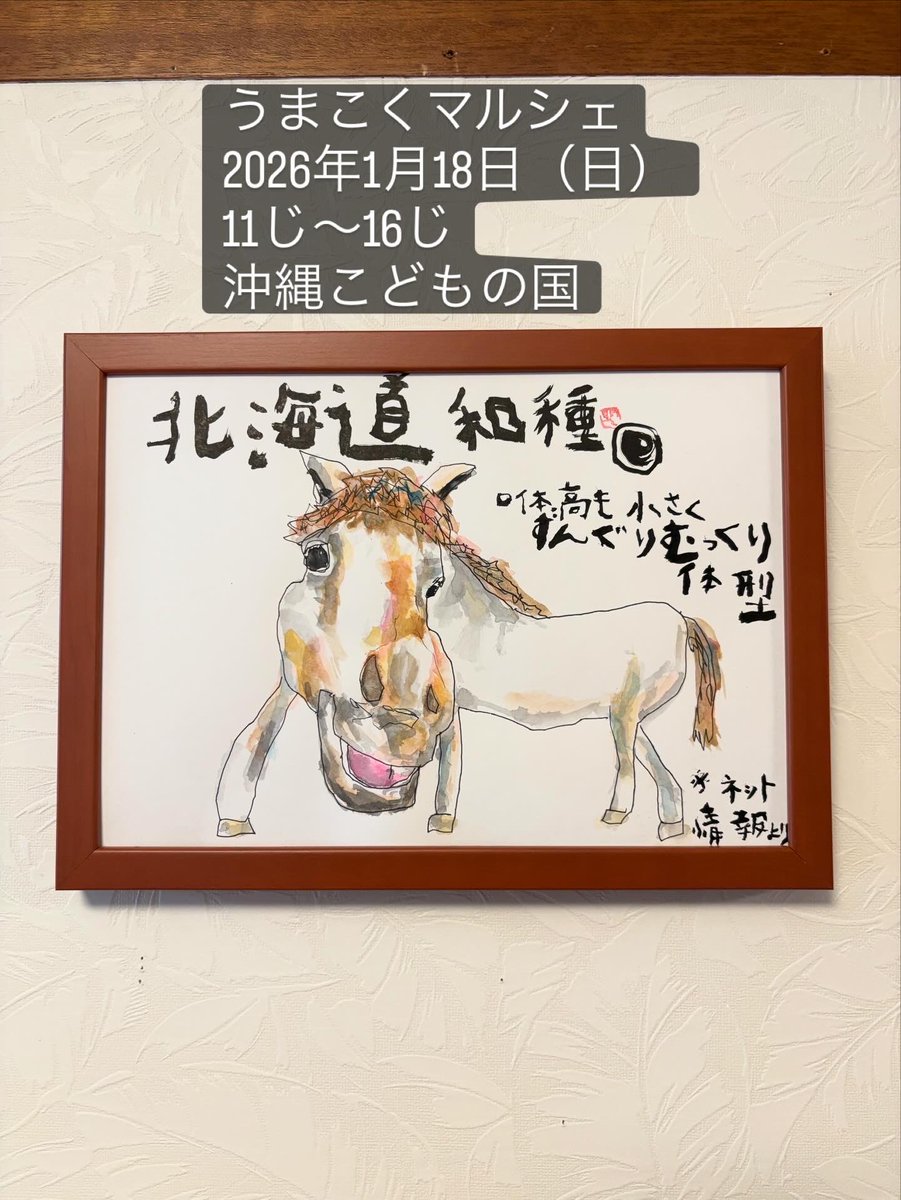 うまこくマルシェ
2026年1月18日（日）
11じ～16じ
沖縄こどもの国
北海道和種
体高も小さく
ずんぐりむっくり
体型
※ネット
情報より